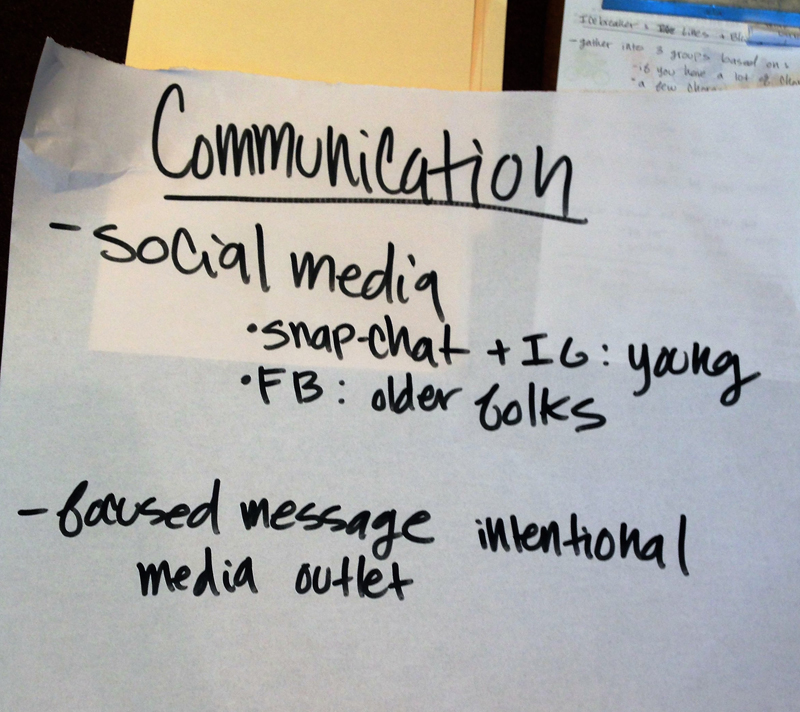 Icebreaker: Likes +
-gather into 3 groups based on:
•if you have a lot of
•a few
Communication
- social media
•snap-chat + IG: young
•FB: older folks
- focused message intentional
media outlet